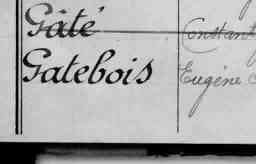 Gâté Constant
Gatebois Eugène